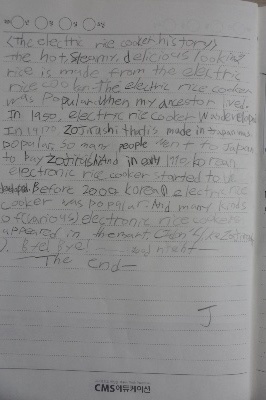 <The electric rice cooker history>
the hot, steamy delicious looking
rice is made from the electric
rice cooker. The electric rice cooker
was popular when my ancestor lived.
In 1950, electric rice cooker was developed
In 1970 ZOJIRUSHI that is made in Japan was
popular, so many people went to Japan
to buy ZOJIRUSHI. And in early Korean
electronic rice cooker started to be
Before 2000 Korean electric rice
cooker was popular. And many kinds
of (various) electronic rice cookers
appeared in the mart.
Bye! Bye!
The end-
J
CMS에듀케이션